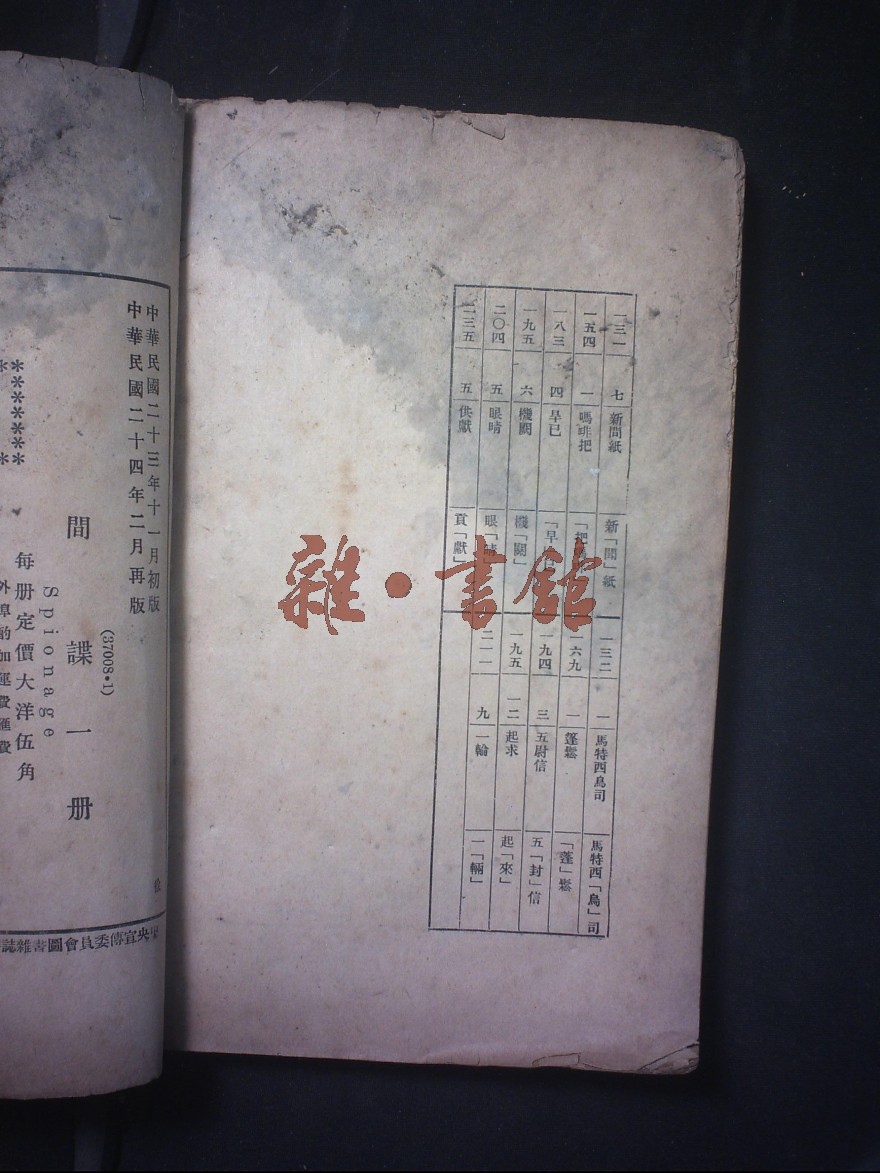 一三一 七 新間紙 新「聞」紙 一三二 一 馬特西鳥司 馬特西「烏」司
一五四 一 嗎啡把 一六九 一 篷鬆 「蓬」鬆
一八三 四 旱已 一九四 三 五尉信 五「封」信
一九五 六 機關 機「關」 一九五 一二 起求 起「來」
二〇四 五 眼晴 二一一 九 一輪 一「輛」
二三五 五 供獻 貢「獻」
雜·書館
中華民國二十三年十一月初版
中華民國二十四年二月再版
(37008·1)
間諜一册
Spionage
每册定價大洋伍角
外埠酌加運費滙費
******
央宣傳委員會圖書雜誌